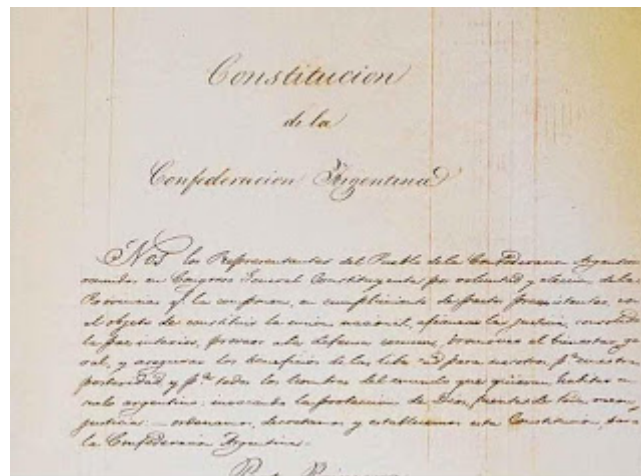 Constitucion
de la
Confederacion Argentina
Nos los Representantes del Pueblo de la Confederacion Argentina
reunidos en Congreso General Constituyente por voluntad y eleccion de las
Provincias qe la componen, en cumplimiento de pactos preexistentes, con
el objeto de constituir la union nacional, afianzar la justicia, consolidar
la paz interior, proveer a la defensa comun, promover el bienestar ge
ral, y asegurar los beneficios de la libertad para nosotros, pa nuestra
posteridad y pa todos los hombres del mundo que quieran habitar en
suelo argentino: invocando la proteccion de Dios, fuente de toda razon y
justicia: ordenamos, decretamos y establecemos esta Constitucion, para
la Confederacion Argentina.